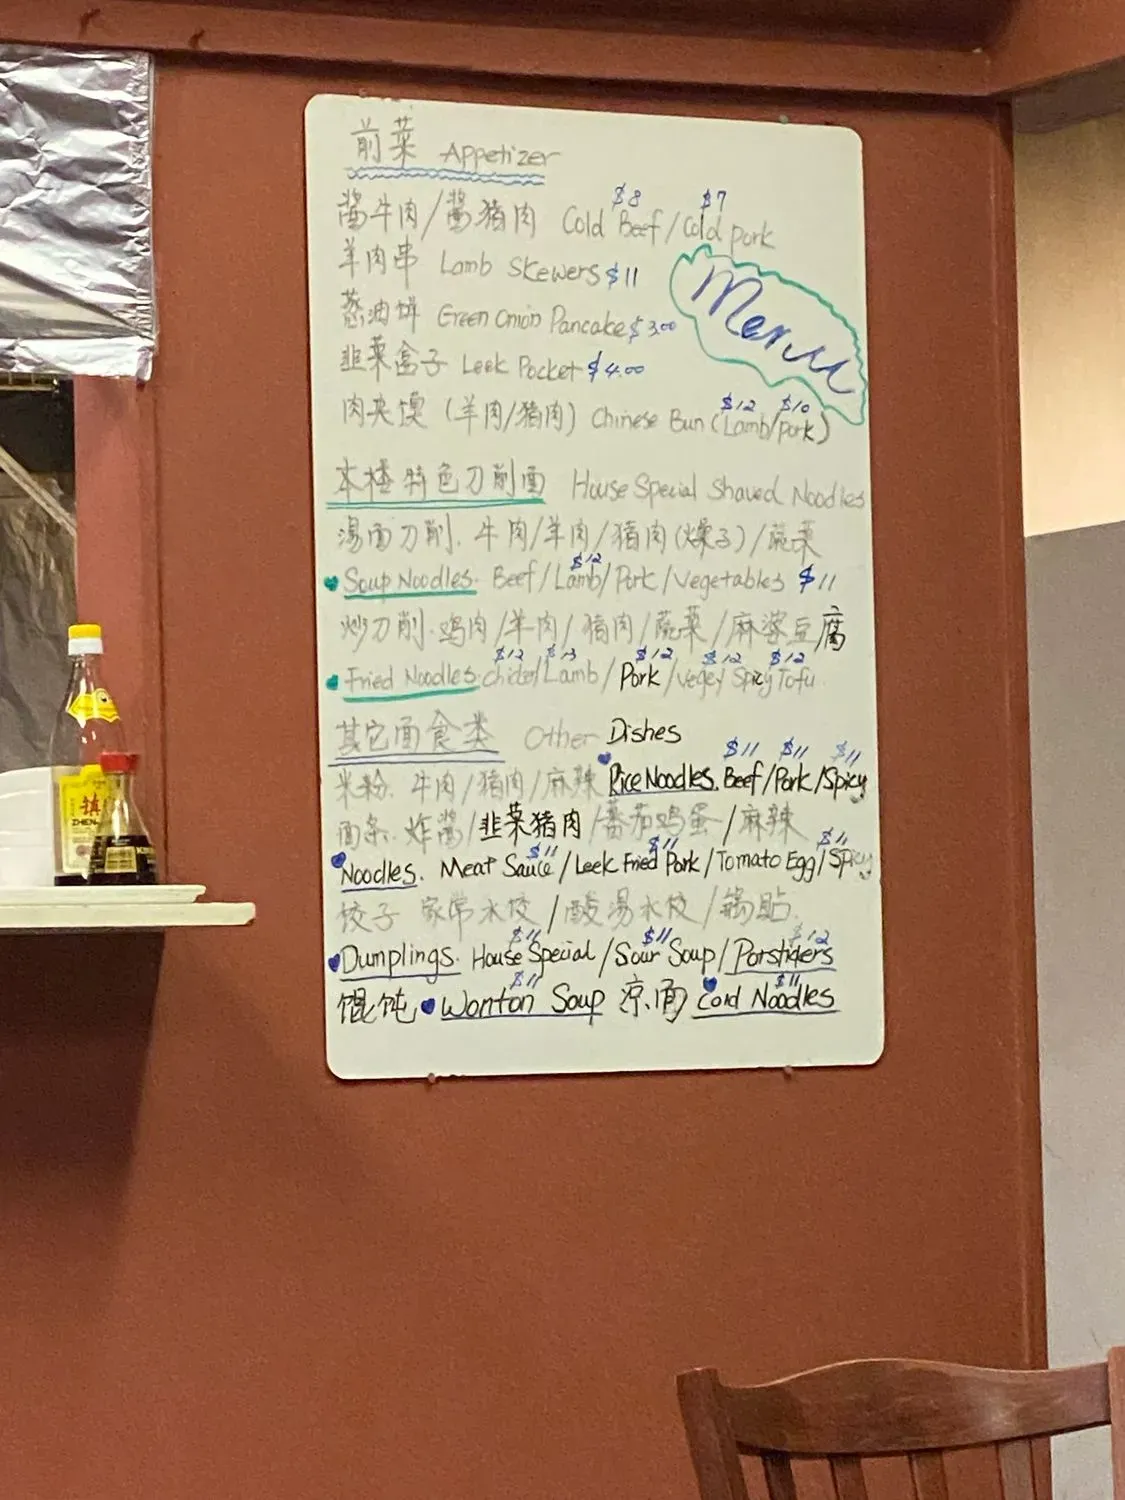 前菜 Appetizer
$8 $7
酱牛肉/酱猪肉 Cold Beef/Cold pork
羊肉串 Lamb Skewers $11
葱油饼 Green Onion Pancake $3.00
韭菜盒子 Leek Pocket $4.00
Menu
$12 $10
肉夹馍 (羊肉/猪肉) Chinese Bun (Lamb/pork)
本楼特色刀削面 House Special Shaved Noodles
汤面刀削. 牛肉/羊肉/猪肉(燥子)/蔬菜
$12
Soup Noodles. Beef/Lamb/Pork/Vegetables $11
炒刀削. 鸡肉/羊肉/猪肉/蔬菜/麻婆豆腐
$12 $13 $12 $12 $12
Fried Noodles Lamb/Pork/Spicy Tofu
其它面食类 Other Dishes
$11 $11 $11
米粉. 牛肉/猪肉/麻辣 Rice Noodles. Beef/Pork/Spicy
面条. 炸酱/韭菜猪肉/蕃茄鸡蛋/麻辣
$11 $11 $11
Noodles. Meat Sauce/Leek Fried Pork/Tomato Egg/Spicy
饺子 家常水饺/酸汤水饺/锅贴.
$11 $11 $12
Dumplings. House Special/Sour Soup/Porstikers
$11 $11
馄饨 Wonton Soup 凉面 Cold Noodles
镇
ZHEN